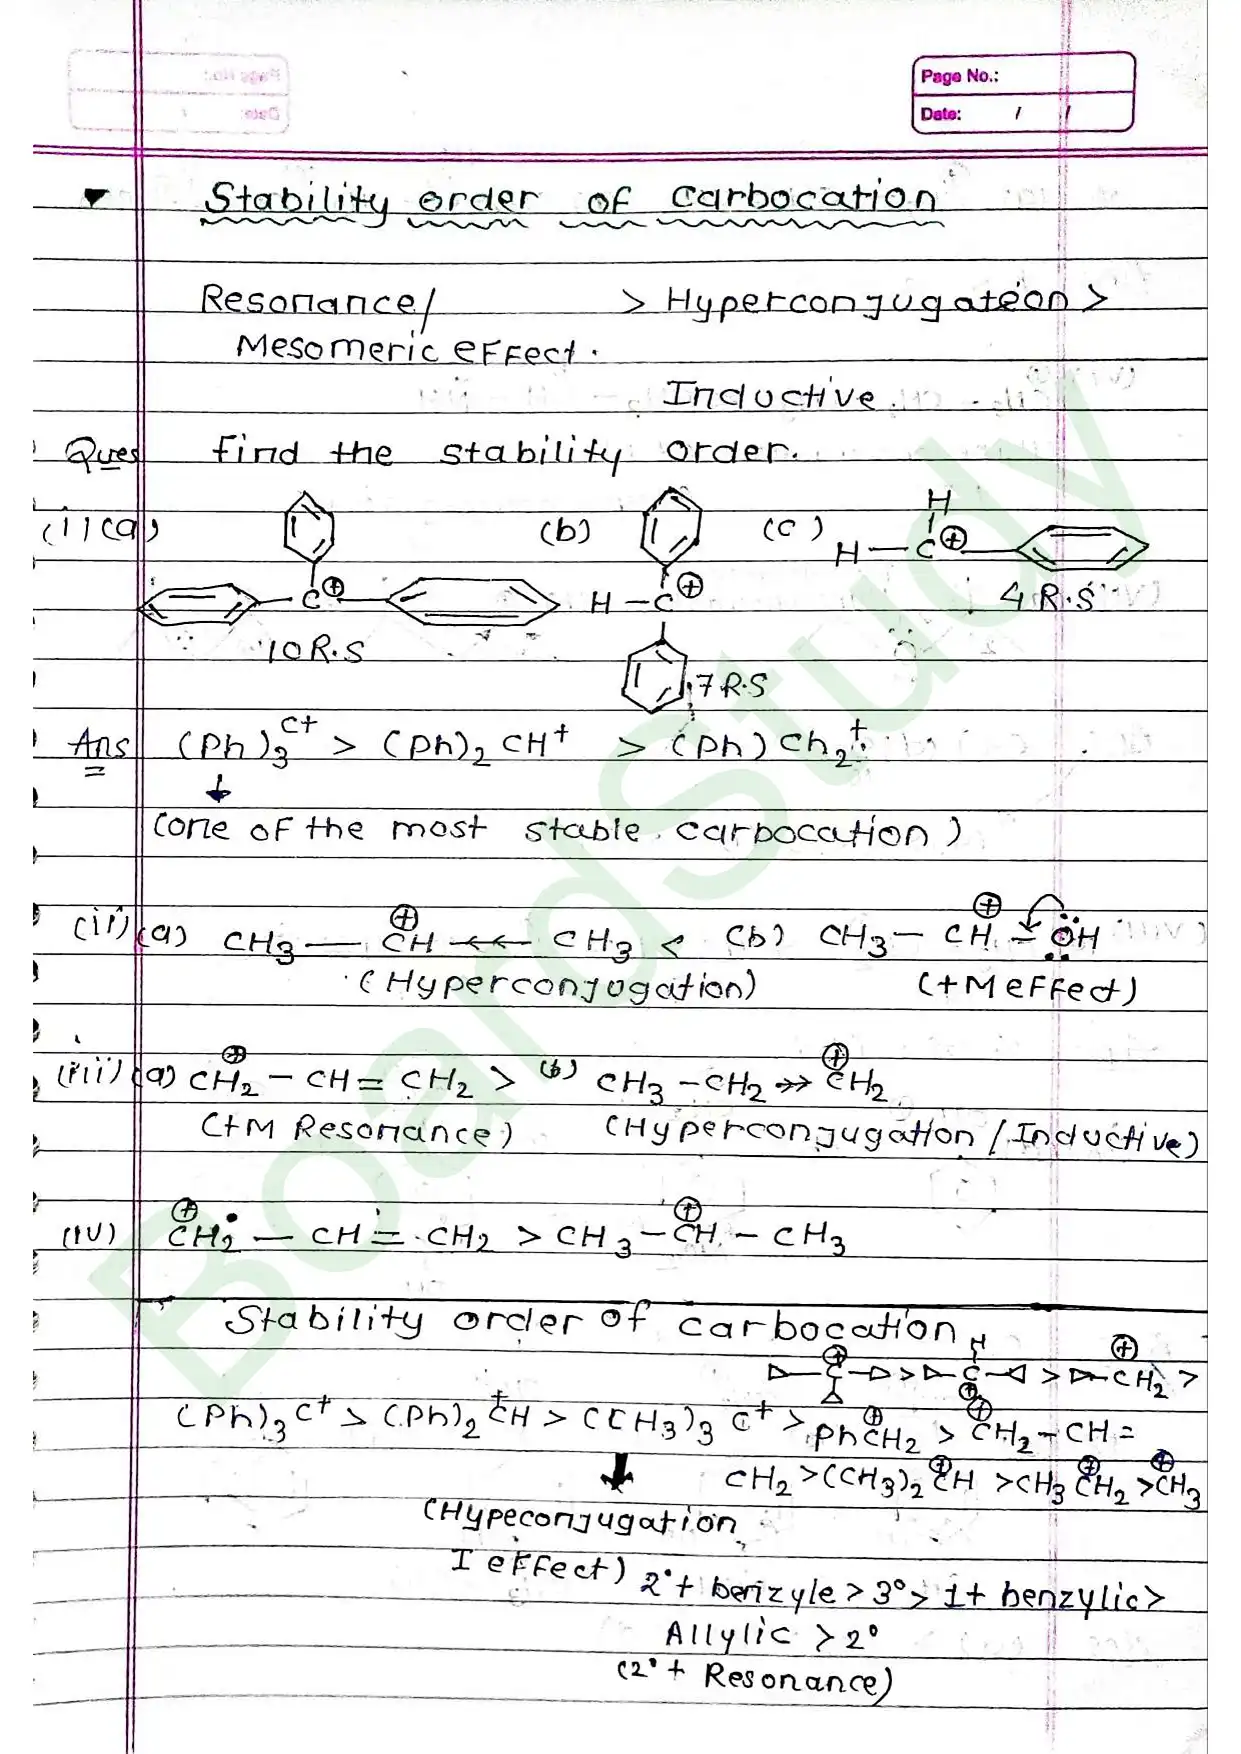 Page No.:
Date: / /
Stability order of carbocation
Resonance/ > Hyperconjugateion >
Mesomeric effect.
Inductive.
Ques find the stability order.
(i) (a) (b) (c) H
H — C⊕
C⊕ H — C⊕ 4 R.S
10 R.S
7 R.S
Ans (Ph)₃C+ > (Ph)₂CH+ > (Ph)Ch₂+
↓
(one of the most stable carbocation)
(ii) (a) CH₃ — ⊕CH ←← CH₃ < (b) CH₃ — ⊕CH — ÖH
(Hyperconjugation) (+M effect)
(iii) (a) ⊕CH₂ — CH = CH₂ > (b) CH₃ — CH₂ →> ⊕CH₂
(+M Resonance) (Hyperconjugation / Inductive)
(iv) ⊕CH₂ — CH = CH₂ > CH₃ — ⊕CH — CH₃
Stability order of carbocation
▷—C⊕—▷ > ▷—C⊕—◁ > ▷—⊕CH₂ >
(Ph)₃C+ > (Ph)₂+CH > (CH₃)₃C+ > Ph⊕CH₂ > ⊕CH₂ — CH =
CH₂ > (CH₃)₂⊕CH > CH₃⊕CH₂ > ⊕CH₃
↓
(Hypeconjugation
I effect)
2° + benzyle > 3° > 1 + benzylic >
Allylic > 2°
(2° + Resonance)
BoardStudy